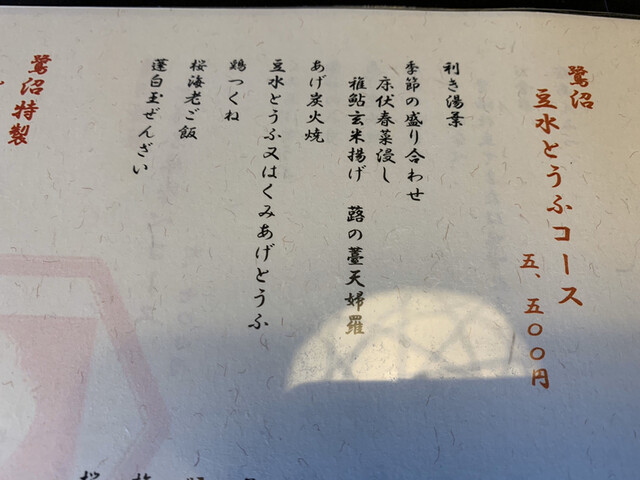 鷺沼
豆水とうふコース
五、五〇〇円
利き湯葉
季節の盛り合わせ
床伏春菜浸し
稚鮎玄米揚げ 蕗の薹天婦羅
あげ炭火焼
豆水とうふ又はくみあげとうふ
鶏つくね
桜海老ご飯
蓬白玉ぜんざい
鷺沼特製